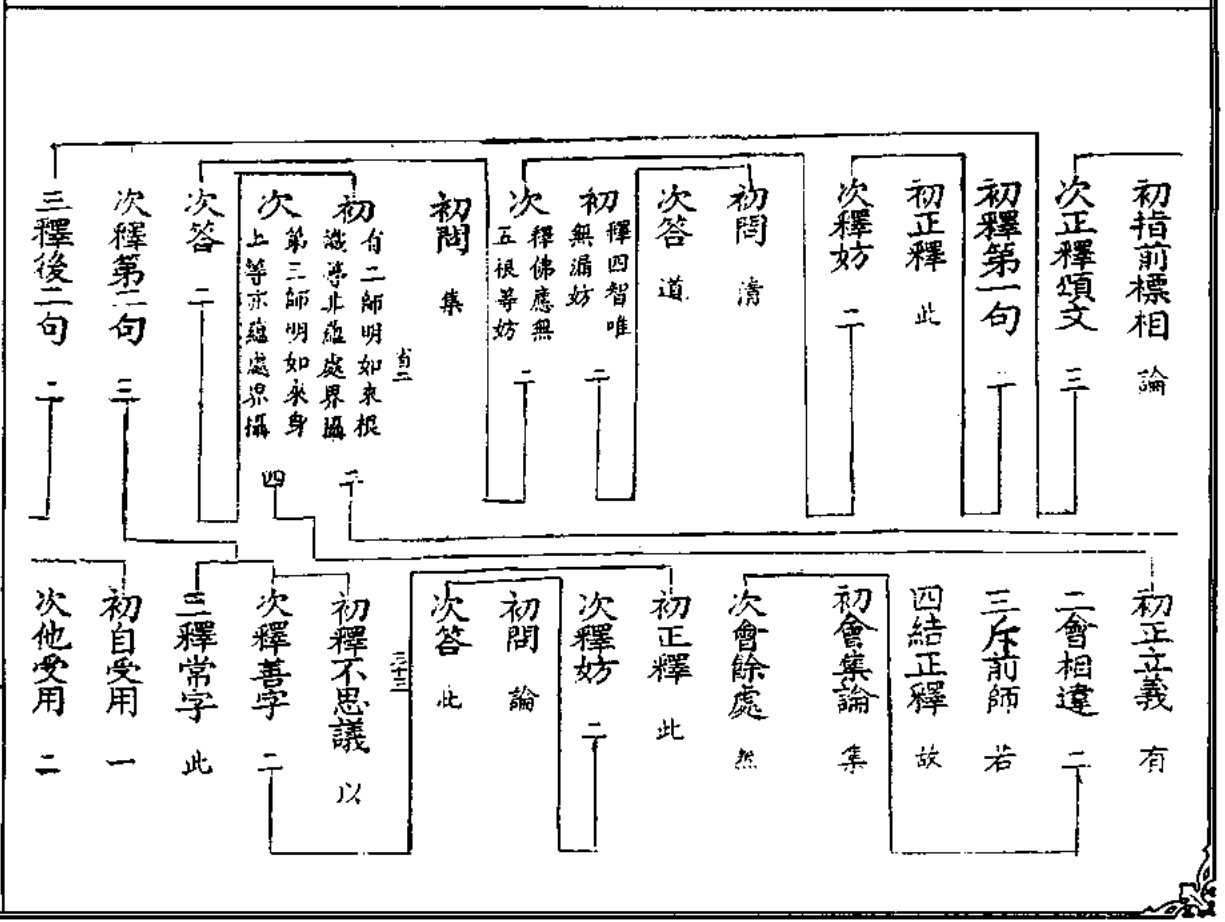 初指前標相 論
次正釋頌文 三
初釋第一句 二
初正釋 此
次釋妨 二
初問 清
次答 道
初 釋四智唯
無漏妨 二
次 釋佛應無
五根等妨 二
初問 集
初 有二師明如來根
識等非蘊處界攝 二
次 第三師明如來身
上等亦蘊處界攝 四
次答 二
次釋第二句 三
三釋後二句 二
初正立義 有
二會相違 二
三斥前師 若
四結正釋 故
初會集論 集
次會餘處 然
初正釋 此
次釋妨 二
初問 論
次答 此
初釋不思議 以
次釋善字 二
三釋常字 此
初自受用 一
次他受用 二